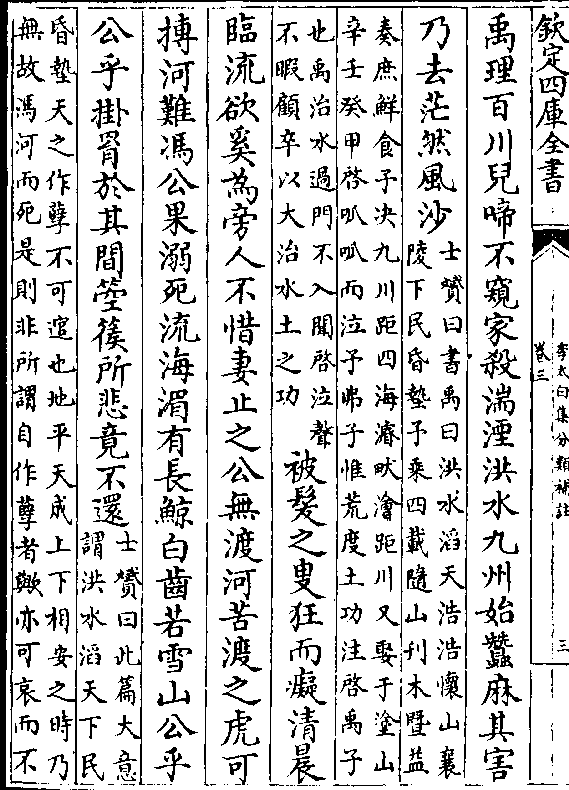 欽定四庫全書
李太白集分類補註
卷三
三
禹理百川兒啼不窺家殺湍湮洪水九州始蠶麻其害
乃去茫然風沙
士贇曰書禹曰洪水滔天浩浩懷山襄
陵下民昏墊予乘四載隨山刊木暨益
奏庶鮮食予決九川距四海濬畎澮距川又娶于塗山
辛壬癸甲啓呱呱而泣予弗子惟荒度土功注啓禹子
也禹治水過門不入聞啓泣聲
不暇顧卒以大治水土之功
被髮之叟狂而癡清晨
臨流欲奚為旁人不惜妻止之公無渡河苦渡之虎可
搏河難馮公果溺死流海湄有長鯨白齒若雪山公乎
公乎掛罥於其間箜篌所悲竟不還
士贇曰此篇大意
謂洪水滔天下民
昏墊天之作孽不可逭也地平天成上下相安之時乃
無故馮河而死是則非所謂自作孽者歟亦可哀而不